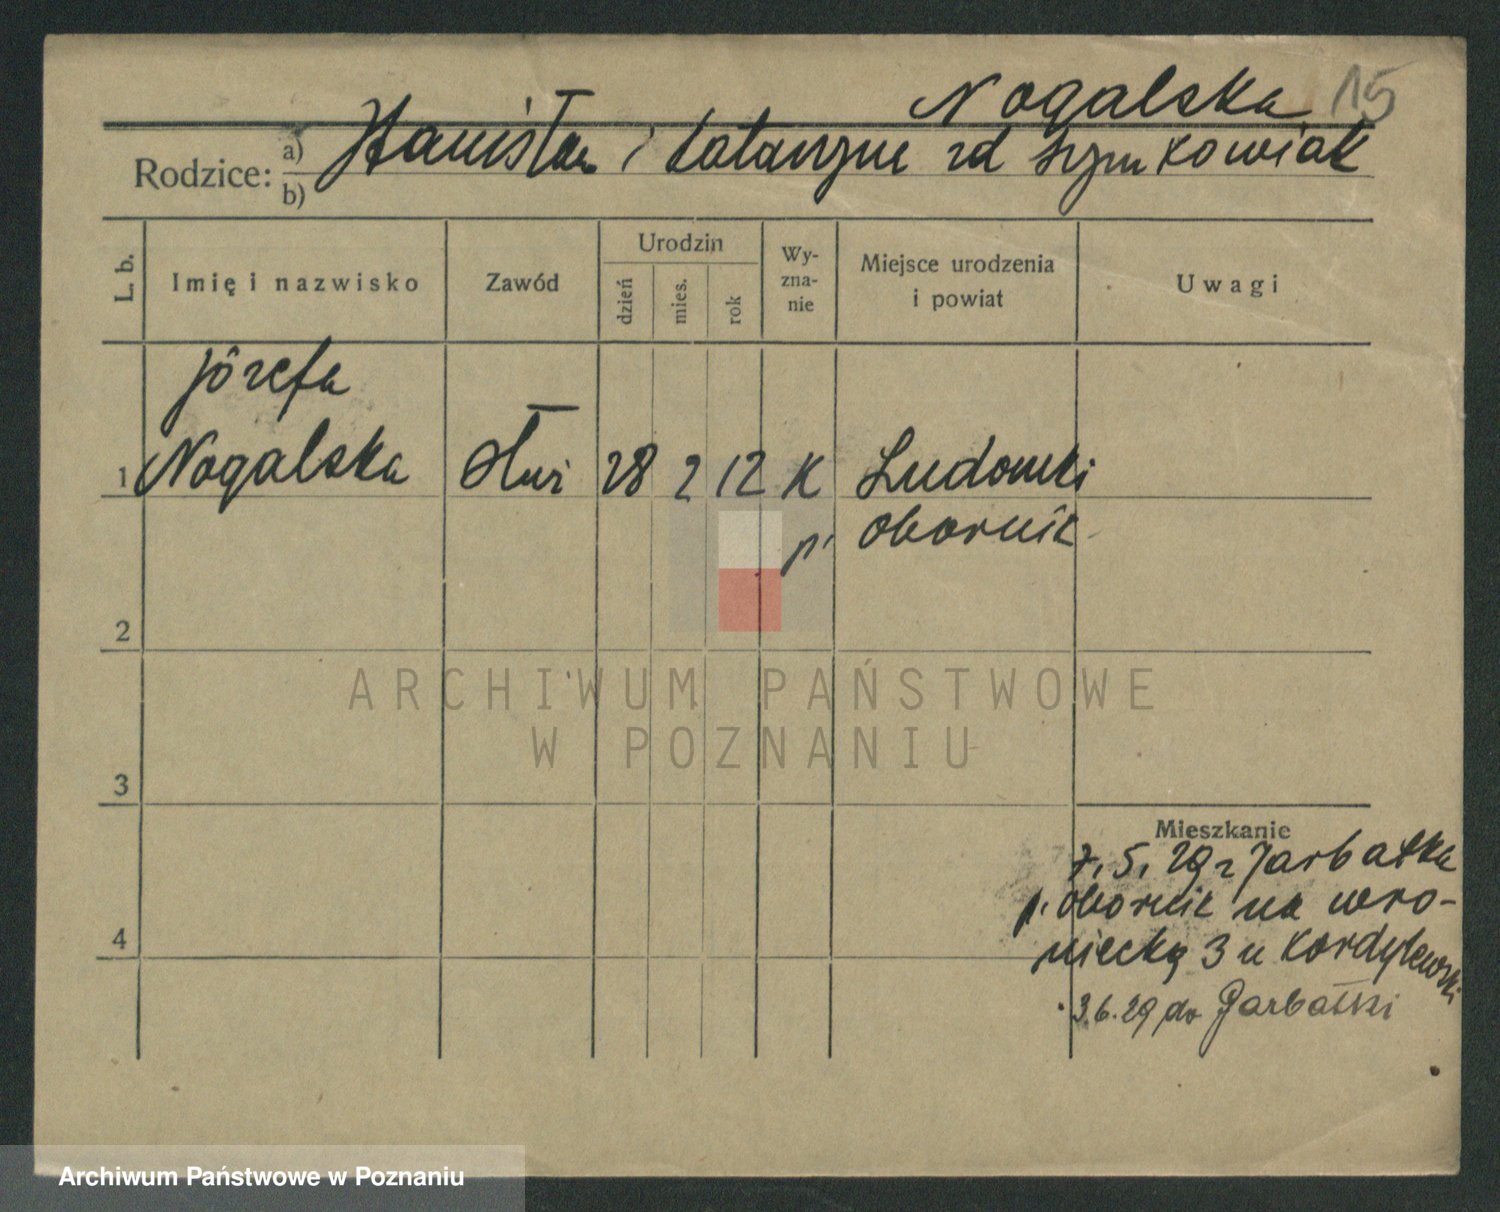 Nogalska 15
Rodzice: a) b) Stanisław i Katarzyna zd Szymkowiak
L. b.
Imię i nazwisko
Zawód
Urodzin
dzień
mies.
rok
Wy-
zna-
nie
Miejsce urodzenia
i powiat
Uwagi
Józefa
1 Nogalska służ 28 2 12 K Ludomki
p. Obornik
2
ARCHIWUM PAŃSTWOWE
W POZNANIU
3
Mieszkanie
7. 5. 29 z Garbatka
p. Obornik na Wro-
4 niecką 3 u Kordylewski
3.6.29 do Garbatki
Archiwum Państwowe w Poznaniu